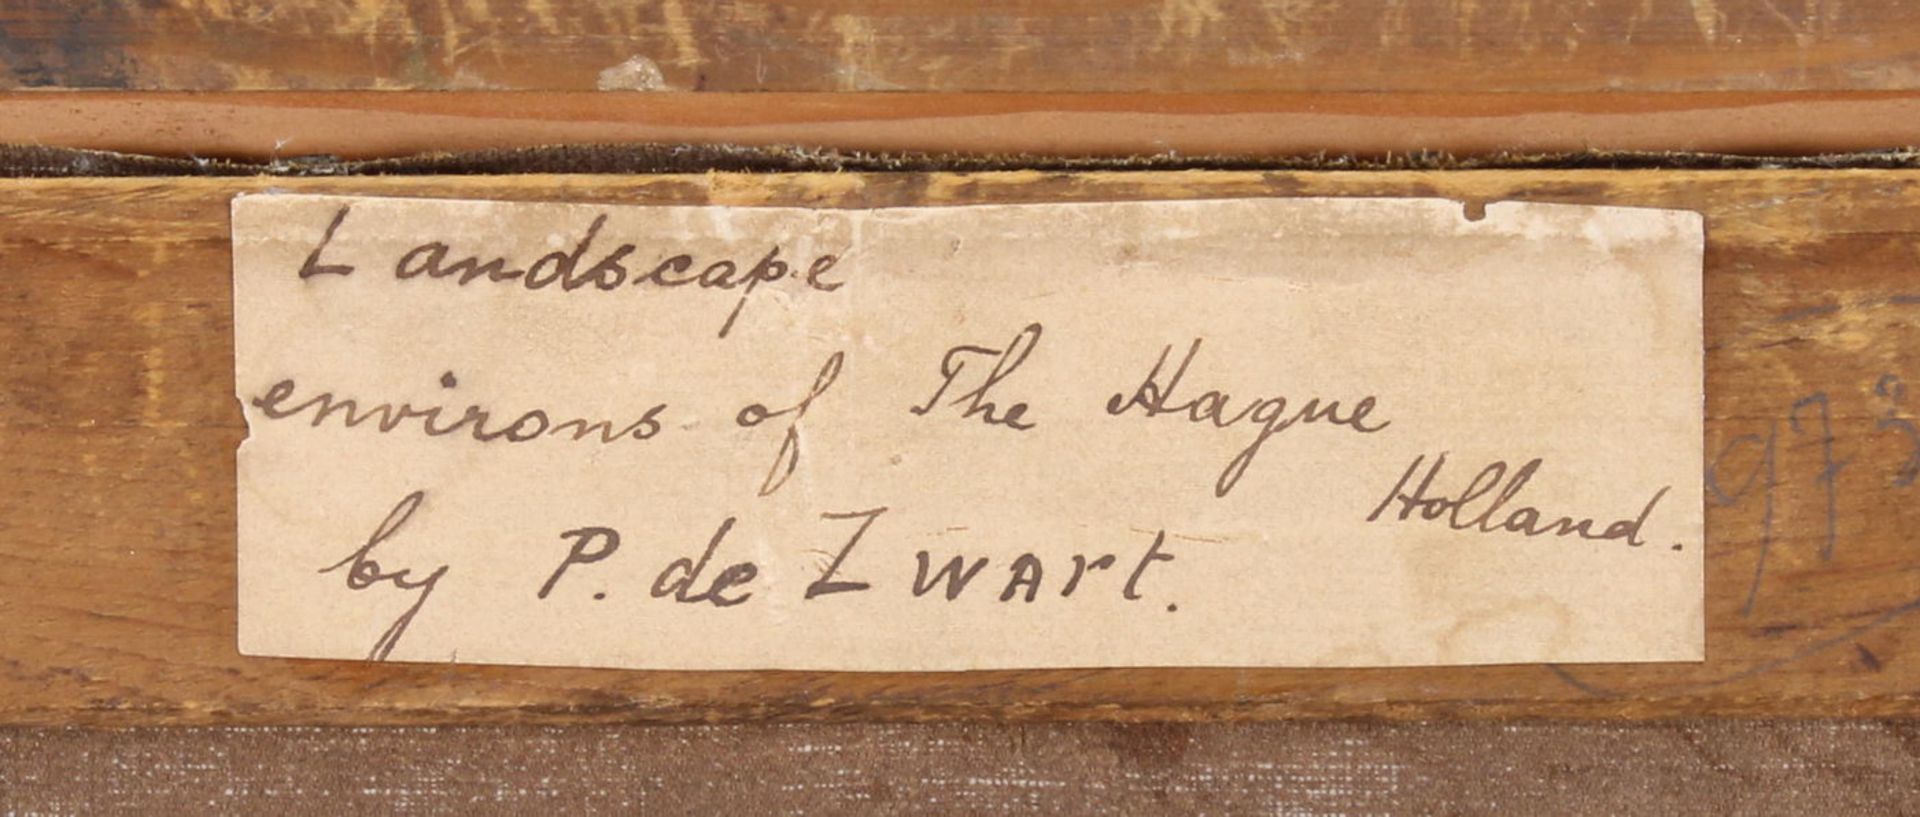 Landscape
environs of The Hague
Holland.
by P. de Zwart.